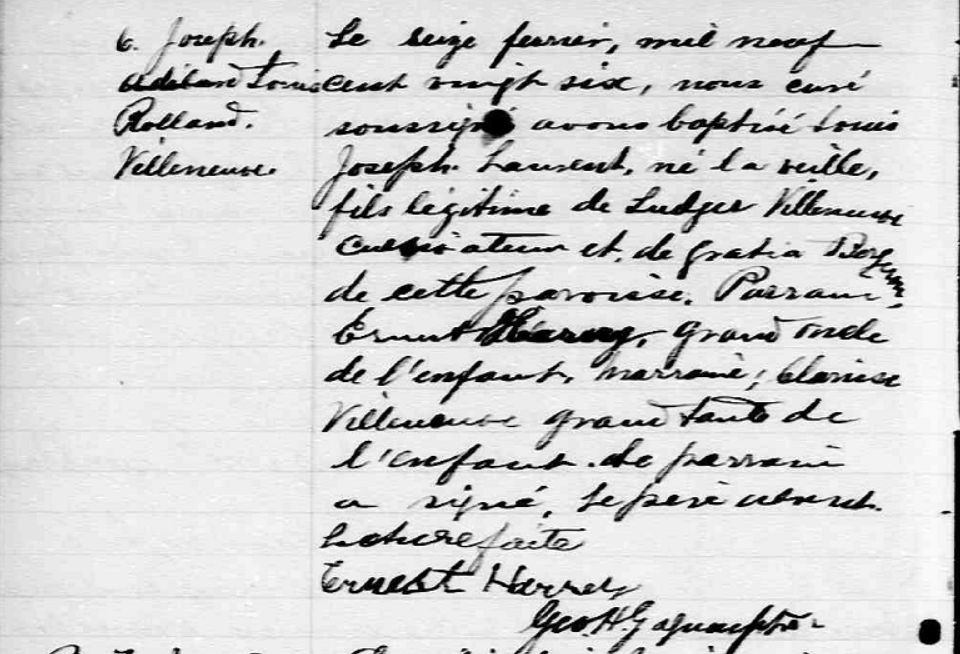 6. Joseph.
Adélard Louis
Rolland.
Villeneuve.
Le seize fevrier, mil neuf
cent vingt six, nous curé
soussigné avons baptisé Louis
Joseph Laurent, né la veille,
fils légitime de Ludger Villeneuve
cultivateur et de Gratia Bergeron,
de cette paroisse. Parrain,
Ernest Harvey, grand oncle
de l'enfant, marraine; Clarisse
Villeneuve grand tante de
l'enfant. Le parrain
a signé, le père absent.
Lecture faite
Ernest Harvey
Geo. H. Gagnon ptre.